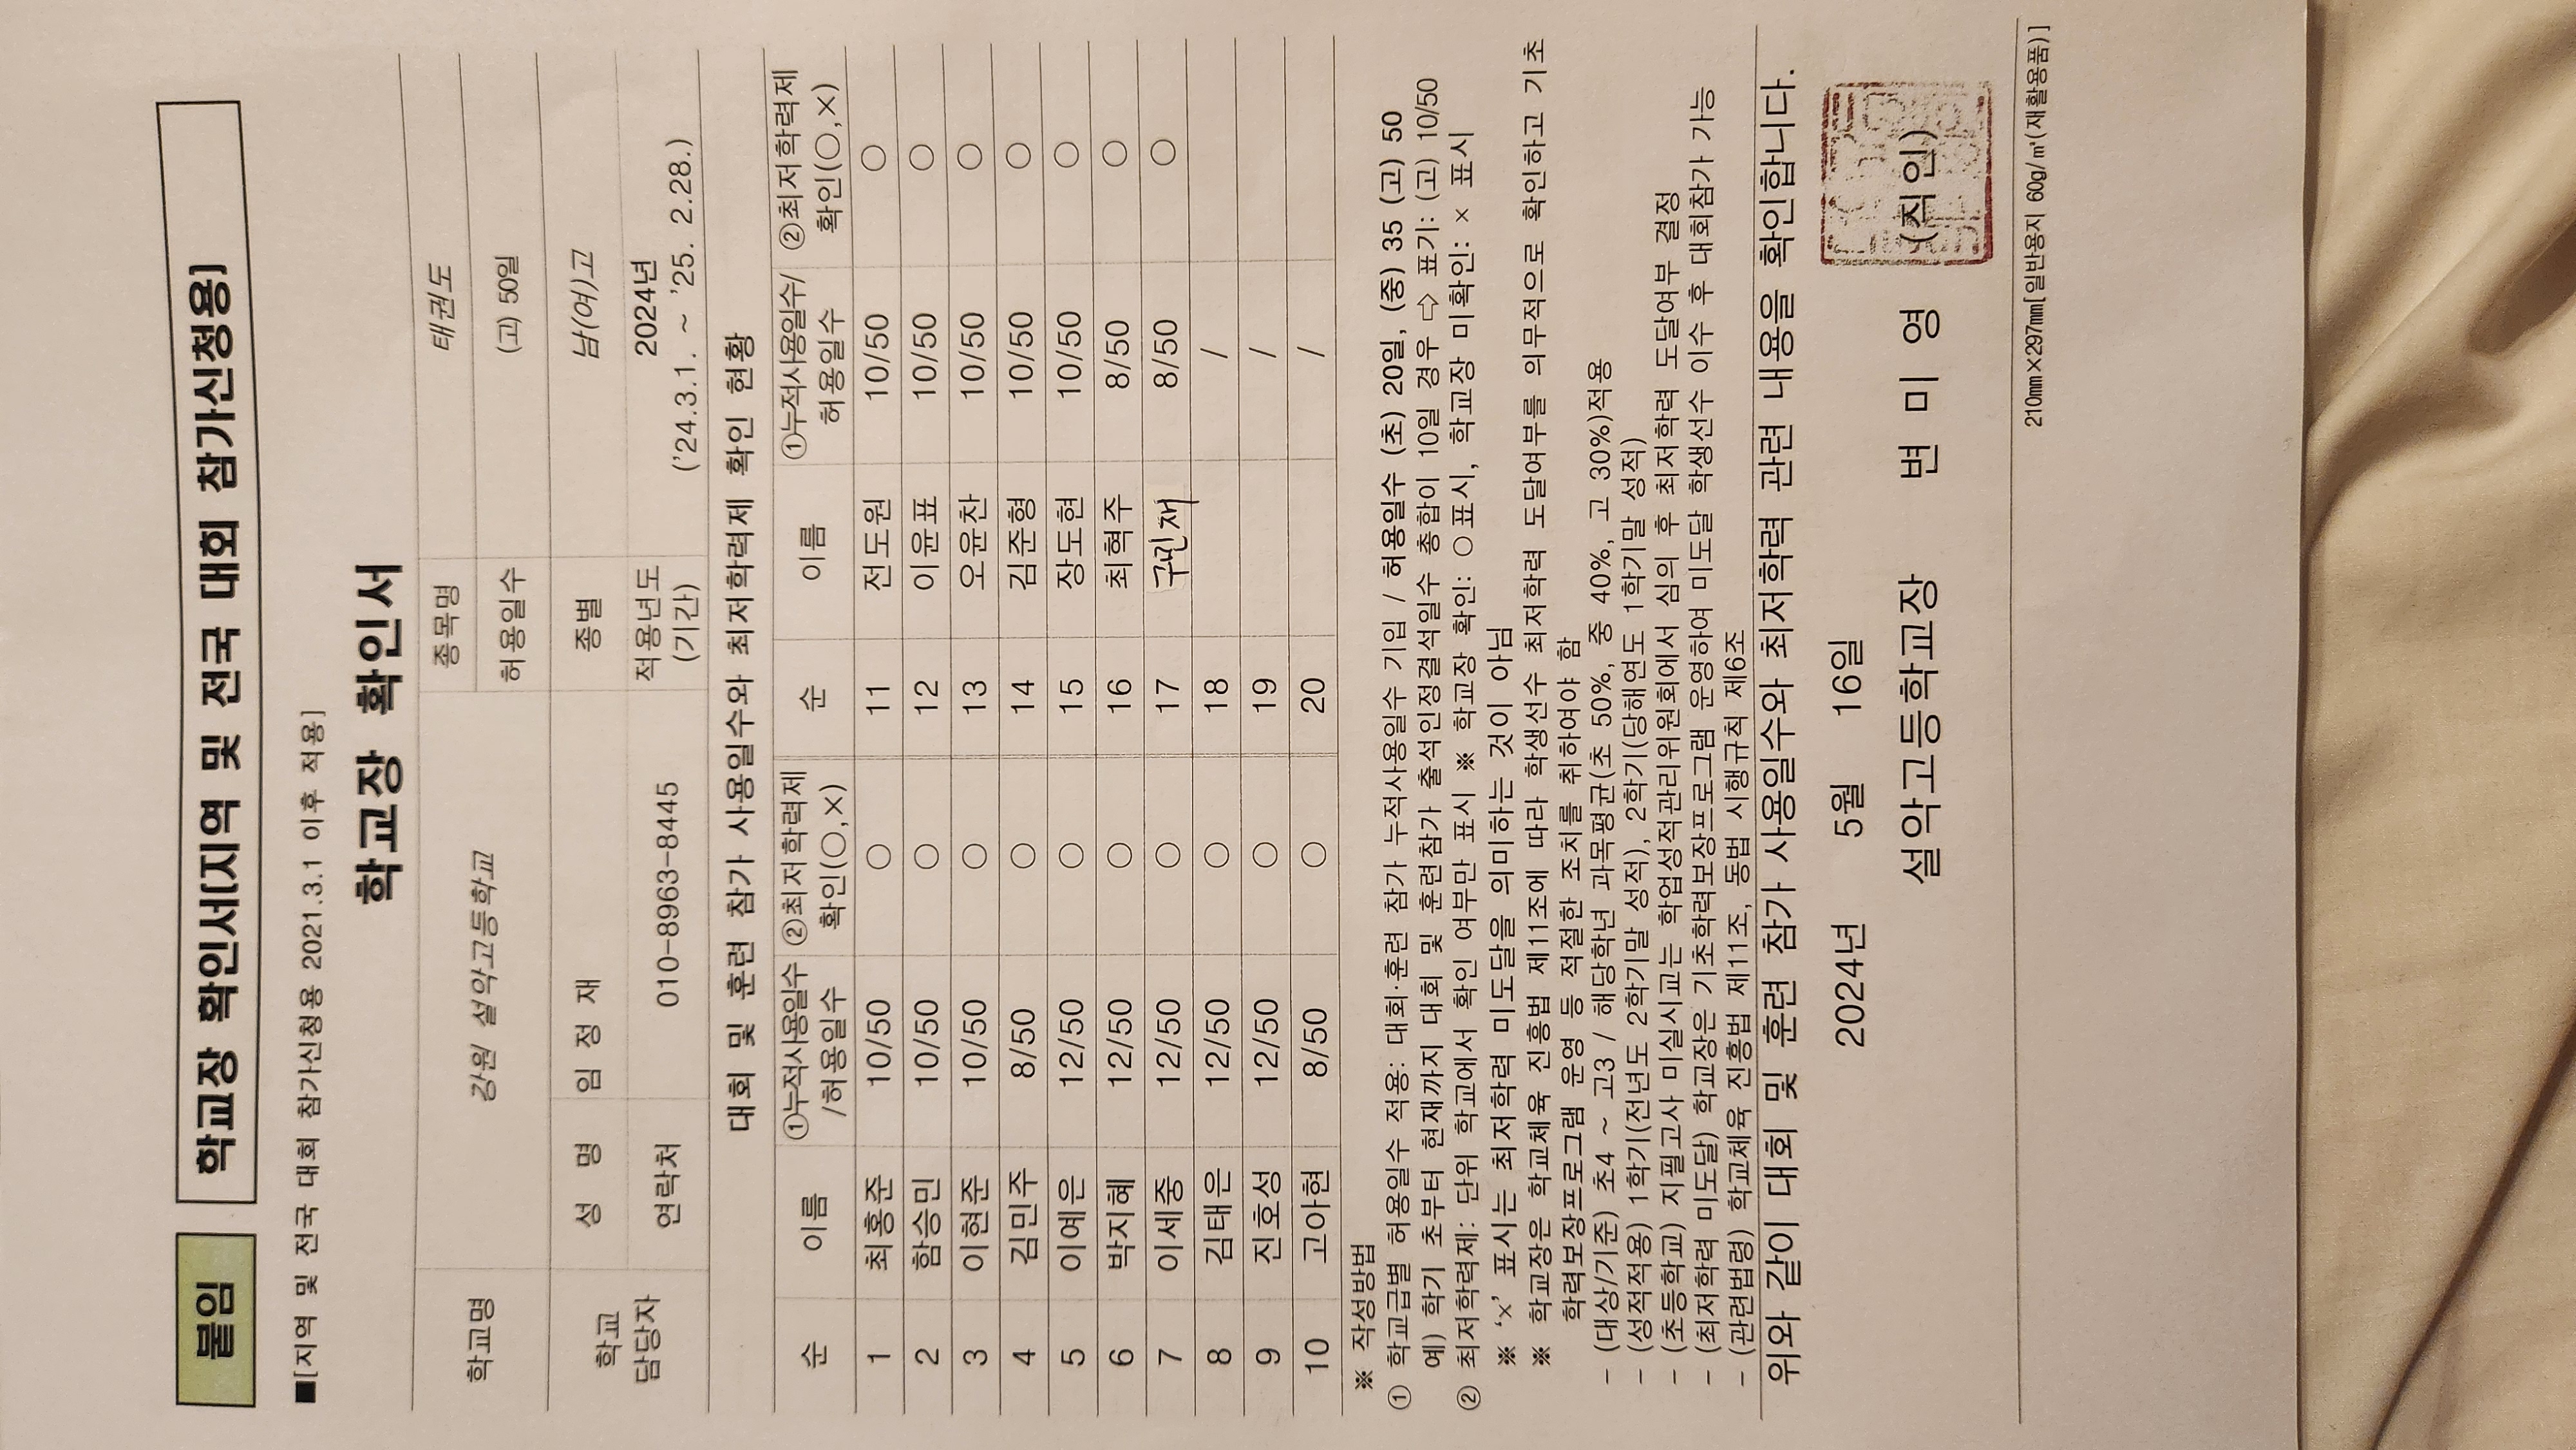 붙임 학교장 확인서(지역 및 전국 대회 참가신청용)
■[지역 및 전국 대회 참가신청용 2021.3.1 이후 적용]
학교장 확인서
학교명 강원 설악고등학교 종목명 태권도
허용일수 (고) 50일
학교 담당자 성 명 임 정 재 종별 남(여)고
연락처 010-8963-8445 적용년도 (기간) 2024년 ('24.3.1. ~ '25. 2.28.)
대회 및 훈련 참가 사용일수와 최저학력제 확인 현황
순 이름 ①누적사용일수/허용일수 ②최저학력제 확인(○,×) 순 이름 ①누적사용일수/허용일수 ②최저학력제 확인(○,×)
1 최홍준 10/50 ○ 11 전도원 10/50 ○
2 함승민 10/50 ○ 12 이윤표 10/50 ○
3 이현준 10/50 ○ 13 오윤찬 10/50 ○
4 김민주 8/50 ○ 14 김준형 10/50 ○
5 이예은 12/50 ○ 15 장도현 10/50 ○
6 박지혜 12/50 ○ 16 최혁주 8/50 ○
7 이세중 12/50 ○ 17 구민재 8/50 ○
8 김태은 12/50 ○ 18 /
9 진호성 12/50 ○ 19 /
10 고아현 8/50 ○ 20 /
※ 작성방법
① 학교급별 허용일수 적용: 대회·훈련 참가 누적사용일수 기입 / 허용일수 (초) 20일, (중) 35 (고) 50
예) 학기 초부터 현재까지 대회 및 훈련참가 출석인정결석일수 총합이 10일 경우 ⇨ 표기: (고) 10/50
② 최저학력제: 단위 학교에서 확인 여부만 표시 ※ 학교장 확인: ○표시, 학교장 미확인: × 표시
※ '×' 표시는 최저학력 미도달을 의미하는 것이 아님
※ 학교장은 학교체육 진흥법 제11조에 따라 학생선수 최저학력 도달여부를 의무적으로 확인하고 기초
학력보장프로그램 운영 등 적절한 조치를 취하여야 함
- (대상/기준) 초4 ~ 고3 / 해당학년 과목평균(초 50%, 중 40%, 고 30%)적용
- (성적적용) 1학기(전년도 2학기말 성적), 2학기(당해연도 1학기말 성적)
- (초등학교) 지필고사 미실시교는 학업성적관리위원회에서 심의 후 최저학력 도달여부 결정
- (최저학력 미도달) 학교장은 기초학력보장프로그램 운영하여 미도달 학생선수 이수 후 대회참가 가능
- (관련법령) 학교체육 진흥법 제11조, 동법 시행규칙 제6조
위와 같이 대회 및 훈련 참가 사용일수와 최저학력 관련 내용을 확인합니다.
2024년 5월 16일
설악고등학교장 변 미 영 (직인)
210㎜×297㎜[일반용지 60g/㎡(재활용품)]